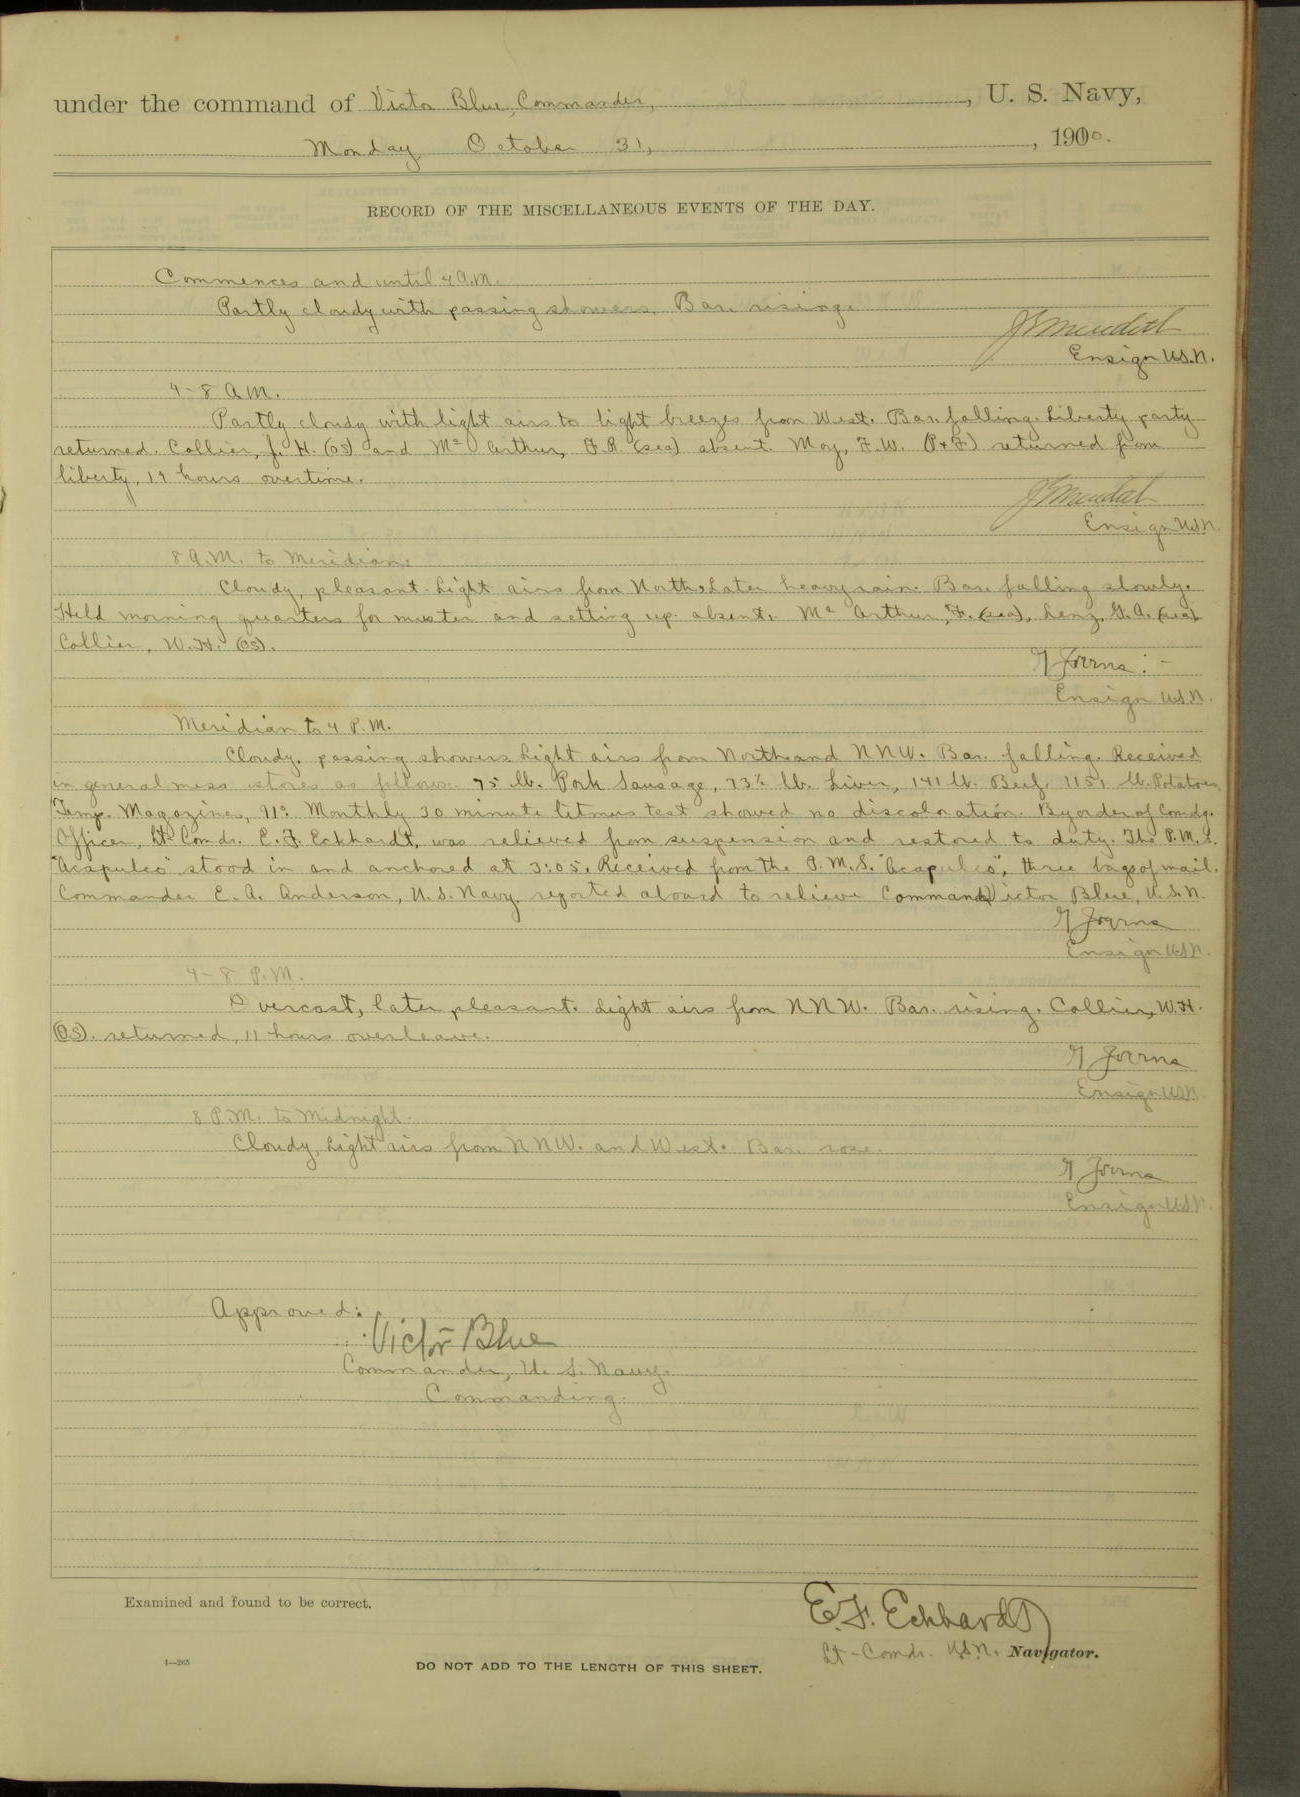 under the command of Victor Blue, Commander, , U. S. Navy,
Monday October 31, , 1900.
RECORD OF THE MISCELLANEOUS EVENTS OF THE DAY.
Commences and until 4 A.M.
Partly cloudy with passing showers. Bar. rising.
Ensign U.S.N.
4-8 A.M.
Partly cloudy with light airs to light breezes from West. Bar. falling. Liberty party
returned. Collier, J. H. (OS) and Mc Arthur, F.R. (sea) absent. Moy, F.W. (P+F) returned from
liberty, 19 hours overtime.
Ensign U.S.N.
8 A.M. to Meridian:
Cloudy, pleasant. Light airs from North. Later heavy rain. Bar. falling slowly.
Held morning quarters for muster and setting up. absent. Mc Arthur, F. (sea), Lenz, G.A. (sea)
Collier, W.H. (OS).
Ensign U.S.N.
Meridian to 4 P.M.
Cloudy, passing showers. Light airs from North and NNW. Bar. falling. Received
in general mess stores as follows: 75 lb. Pork Sausage, 73½ lb. Liver, 141 lb. Beef, 1151 lb. Potatoes,
Temp. Magazines, 91° Monthly 30 minute litmus test showed no discoloration. By order of Comdg.
Officer, Lt. Comdr. E. F. Eckhardt, was relieved from suspension and restored to duty. The P.M.S.
"Acapulco" stood in and anchored at 3:05. Received from the P.M.S. "Acapulco", three bags of mail.
Commander E. A. Anderson, U.S. Navy, reported aboard to relieve Commander Victor Blue, U.S.N.
Ensign U.S.N.
4-8 P.M.
Overcast, later pleasant. Light airs from NNW. Bar. rising. Collier, W.H.
(OS). returned, 11 hours overleave.
Ensign U.S.N.
8 P.M. to Midnight.
Cloudy, Light airs from NNW. and West. Bar. rose.
Ensign U.S.N.
Approved:
Victor Blue
Commander, U. S. Navy,
Commanding.
Examined and found to be correct.
E. F. Eckhardt
Lt-Comdr. U.S.N. Navigator.
4—265
DO NOT ADD TO THE LENGTH OF THIS SHEET.